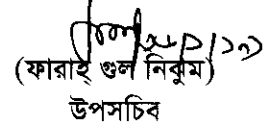 (ফারাহ্ গুল নিঝুম)
উপসচিব